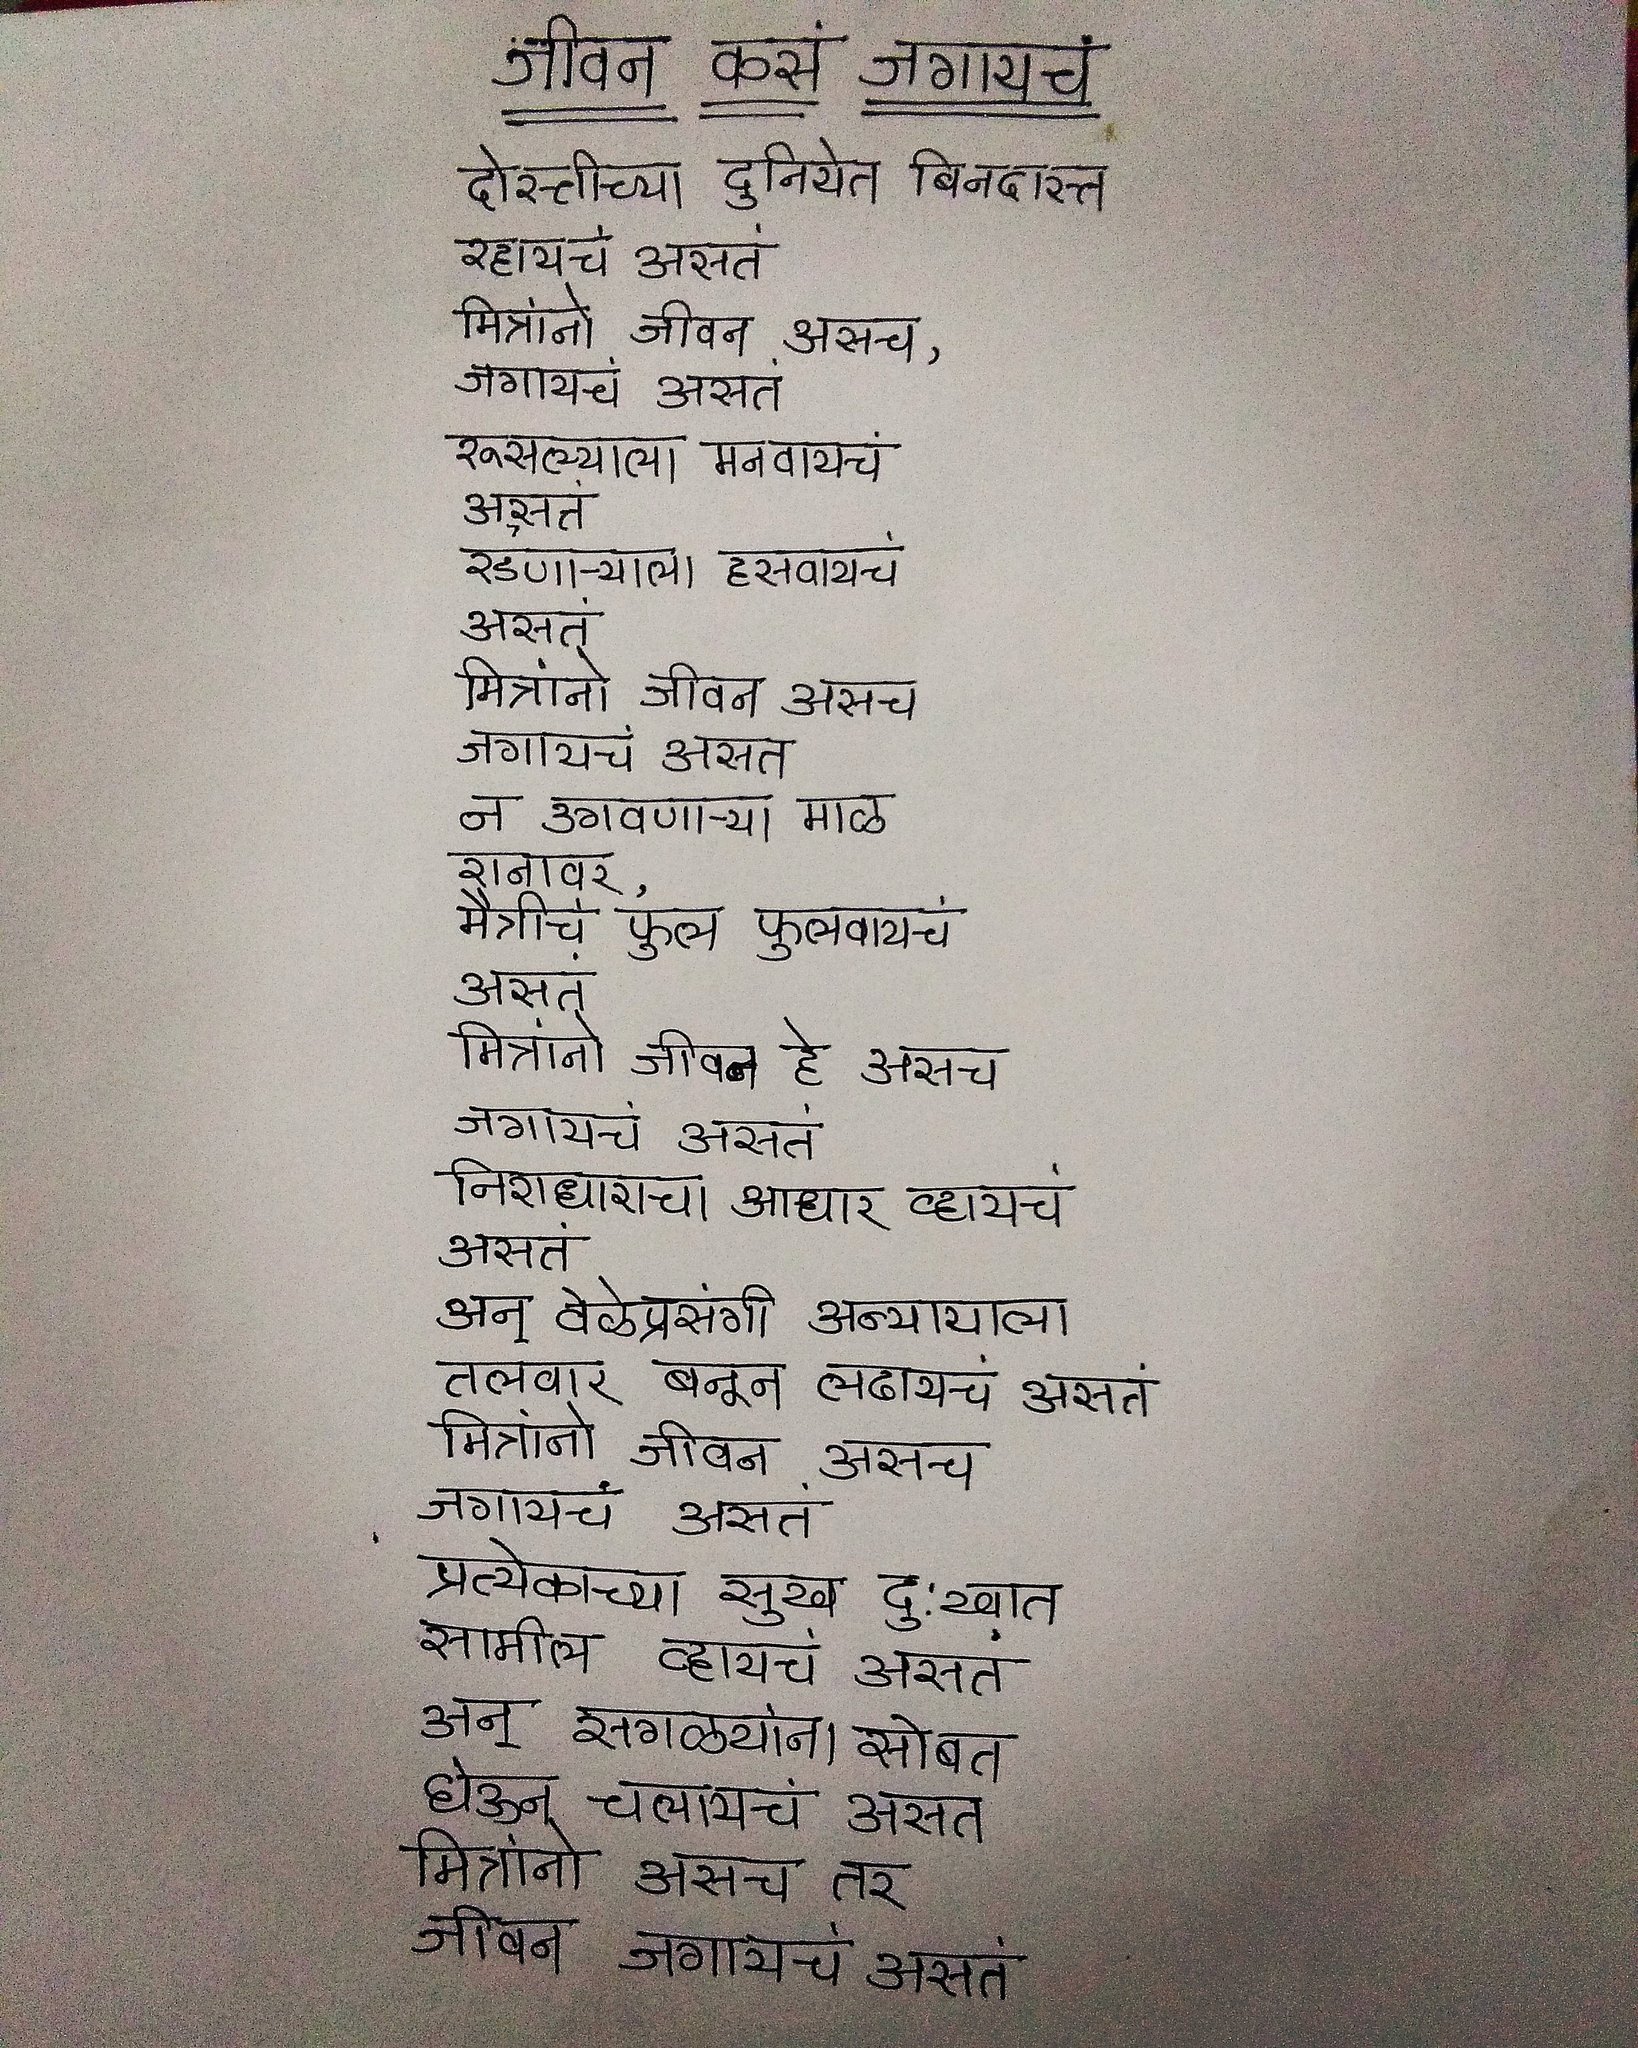 जीवन कसं जगायचं
दोस्तीच्या दुनियेत बिनदास्त
रहायचं असतं
मित्रांनो जीवन असच,
जगायचं असतं
रूसल्याला मनवायचं
असतं
रडणाऱ्याला हसवायचं
असतं
मित्रांनो जीवन असच
जगायचं असत
न उगवणाऱ्या माळ
रानावर,
मैत्रीचं फुल फुलवायचं
असतं
मित्रांनो जीवन हे असच
जगायचं असतं
निराधाराचा आधार व्हायचं
असतं
अन् वेळेप्रसंगी अन्यायाला
तलवार बनून लढायचं असतं
मित्रांनो जीवन असच
जगायचं असतं
प्रत्येकाच्या सुख दु:खात
सामील व्हायचं असतं
अन् सगळयांना सोबत
घेऊन चलायचं असत
मित्रांनो असच तर
जीवन जगायचं असतं